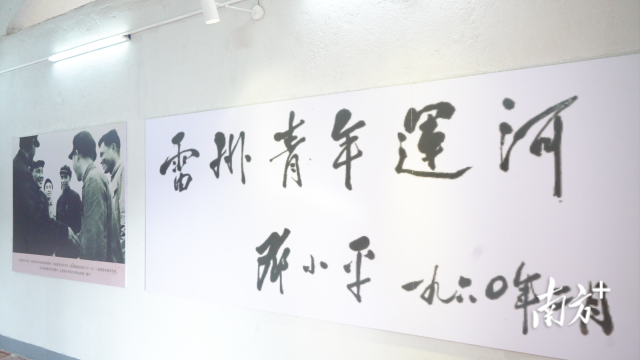 雷州青年運河
邓小平
一九六〇年二月
南方+